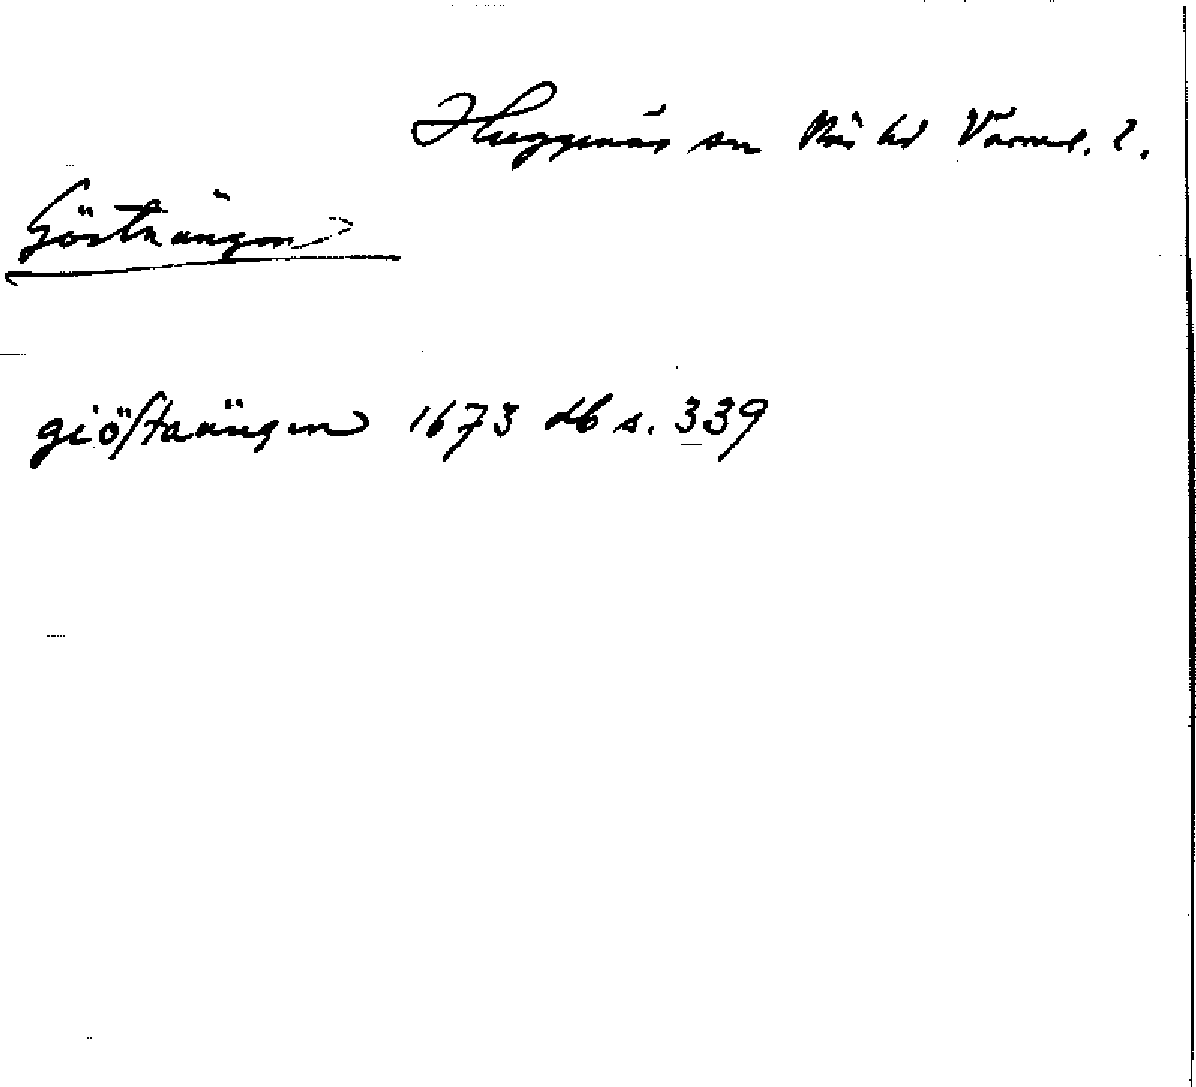 Huggenäs sn Näs hd Värml. l.
Göstaängen
giöstaängen 1673 db s. 339